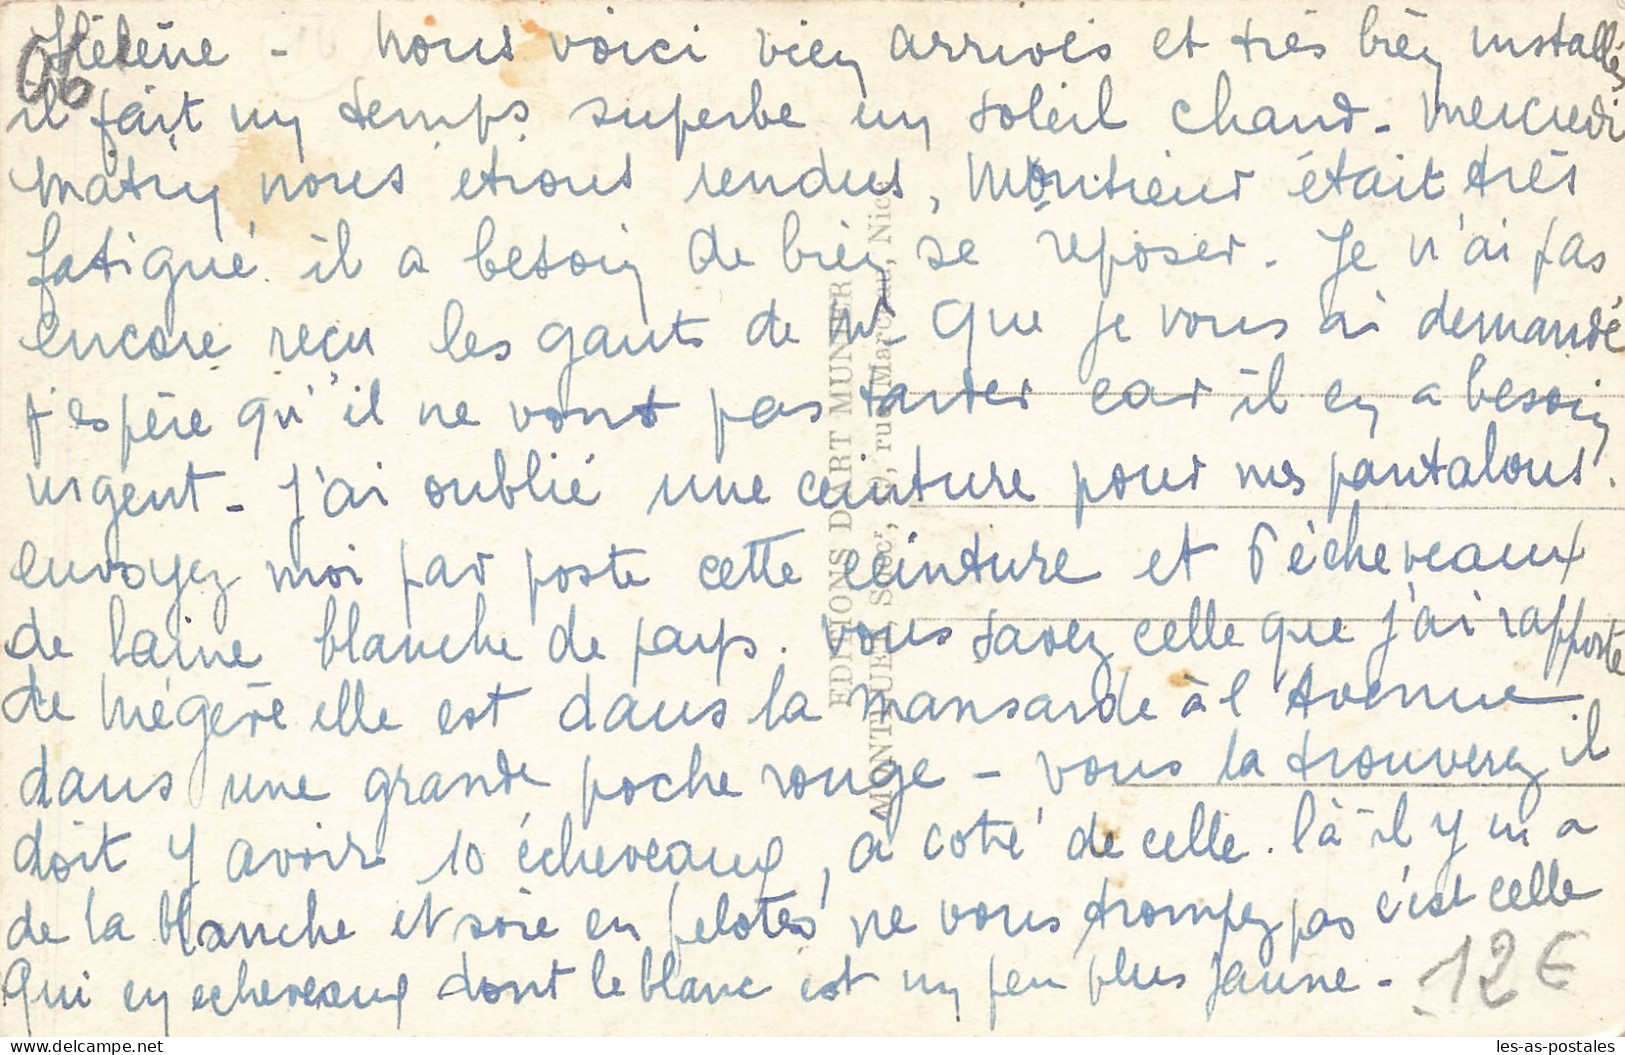 Hélène - nous voici bien arrivés et très bien installés
il fait un temps superbe un soleil chaud - mercredi
matin nous etions rendus, Monsieur était très
fatigué il a besoin de bien se reposer. Je n'ai pas
encore reçu les gants de Mr que je vous ai demandé
j'espère qu'il ne vont pas tarder car il en a besoin
urgent - J'ai oublié une ceinture pour mes pantalons.
envoyez moi par poste cette ceinture et 5 écheveaux
de laine blanche de pays. Vous savez celle que j'ai rapporte
de Mégève elle est dans la mansarde à l'Avenue
dans une grande poche rouge - vous la trouverez il
doit y avoir 10 écheveaux, a coté de celle là il y en a
de la blanche et soie en pelotes ne vous trompez pas c'est celle
qui en echeveaux dont le blanc est un peu plus jaune -
06
12€
EDITIONS D'ART MUNIER
rue Marceau, Nice
les-as-postales.com
les-as-postales